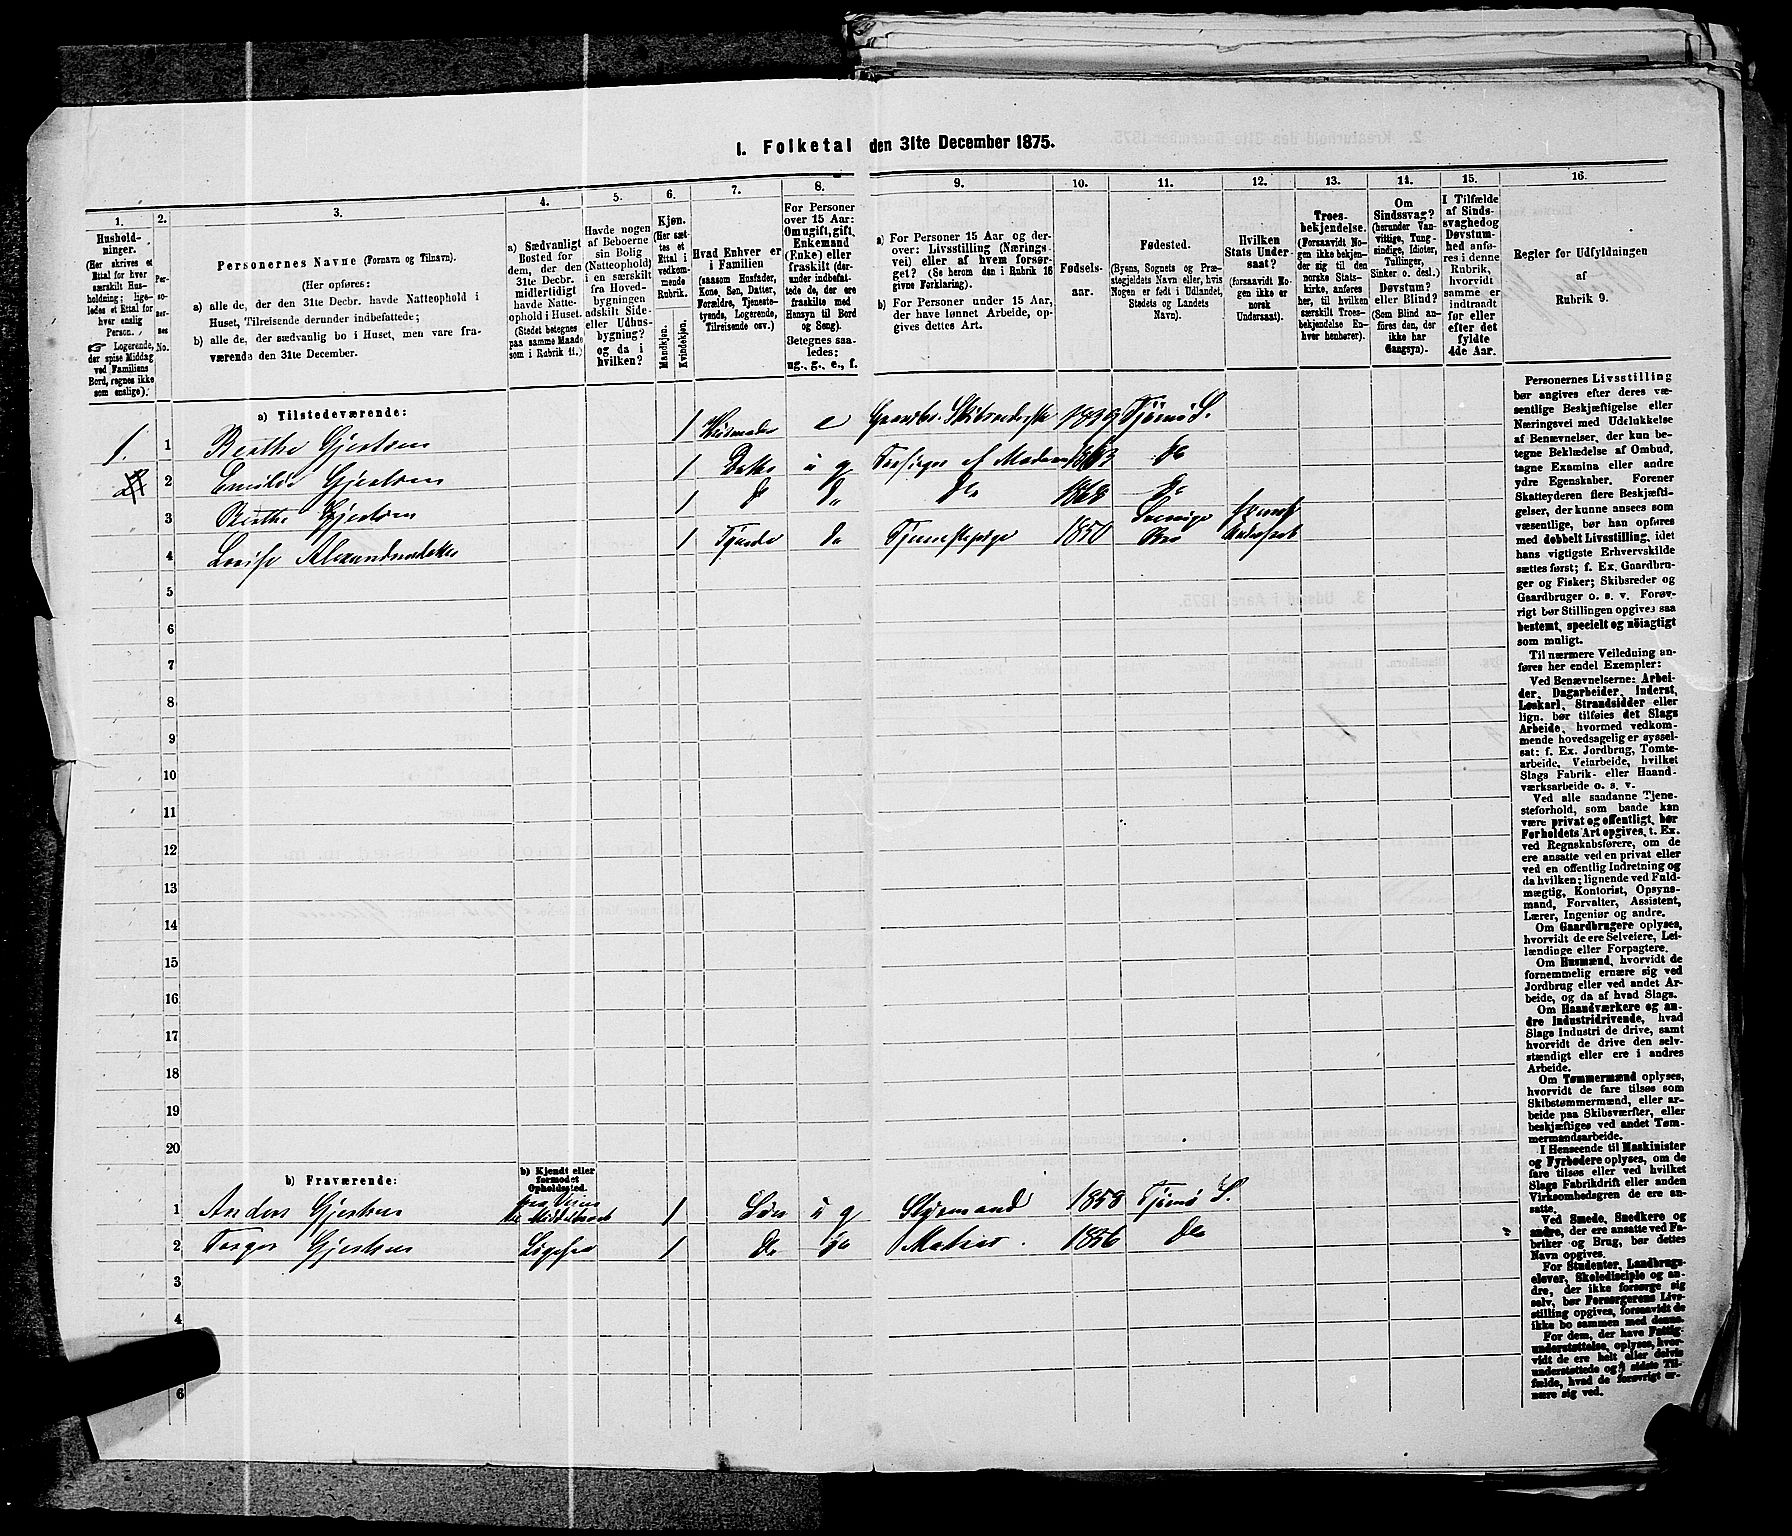 I. Folketal den 31te December 1875.
1. 2. 3. 4. 5. 6. 7. 8. 9. 10. 11. 12. 13. 14. 15. 16.
Husholdninger.
(Her skrives et Ettal for hver særskilt Husholdning; ligeledes et Ettal for hver enslig Person.
☞ Logerende, der spise Middag ved Familiens Bord, regnes ikke som enslige).
Personernes No.
Personernes Navne (Fornavn og Tilnavn).
(Her opføres:
a) alle de, der den 31te Decbr. havde Natteophold i Huset, Tilreisende derunder indbefattede;
b) alle de, der sædvanlig bo i Huset, men vare fraværende den 31te December.
a) Sædvanligt Bosted for dem, der den 31te Decbr. midlertidigt havde Natteophold i Huset.
(Stedet betegnes paa samme Maade som i Rubrik 11.)
Havde nogen af Beboerne sin Bolig (Natteophold) i en særskilt fra Hovedbygningen adskilt Side- eller Udhusbygning? og da i hvilken?
Kjøn.
(Her sættes et Ettal i vedkommende Rubrik.
Mandkjøn.
Kvindekjøn.
Hvad Enhver er i Familien
(saasom Husfader, Kone, Søn, Datter, Forældre, Tjenestetyende, Logerende, Tilreisende osv.)
For Personer over 15 Aar: Om ugift, gift, Enkemand (Enke) eller fraskilt (derunder indbefattede de, der ere fraskilte med Hensyn til Bord og Seng).
Betegnes saaledes: ug., g., e., f.
a) For Personer 15 Aar og derover: Livsstilling (Næringsvei) eller af hvem forsørget? (Se herom den i Rubrik 16 givne Forklaring).
b) For Personer under 15 Aar, der have lønnet Arbeide, opgives dettes Art.
Fødselsaar.
Fødested.
(Byens, Sognets og Præstegjeldets Navn eller, hvis Nogen er født i Udlandet, Stedets og Landets Navn).
Hvilken Stats Undersaat?
(forsaavidt Nogen ikke er norsk Undersaat).
Troesbekjendelse.
(Forsaavidt Nogen ikke bekjender sig til den norske Statskirke, anføres her, til hvilken særskilt Troesbekjendelse Enhver henhører).
Om Sindssvag? (herunder Vanvittige, Tungsindige, Idioter, Tullinger, Sinker o. desl.)
Døvstum? eller Blind? (Som Blind anføres den, der ikke har Gangsyn).
I Tilfælde af Sindssvaghed og Døvstumhed anføres i denne Rubrik, hvorvidt samme er indtraadt før eller efter det fyldte 4de Aar.
Regler for Udfyldningen af Rubrik 9.
a) Tilstedeværende:
1. 1 Berthe Gjertsen 1 Husmoder e Gaardbr. 1839 Tjømø S.
2 Emilie Gjertsen 1 Datter u g Forsørges af Moderen 1863 do
3 Berthe Gjertsen 1 do do do 1868 do
4 Lovise Alexandersdatter 1 Tjende do Tjenestepige 1850 Sverige Svensk Undersaat
5
6
7
8
9
10
11
12
13
14
15
16
17
18
19
20
b) Fraværende:
b) Kjendt eller formodet Opholdssted.
1 Anders Gjertsen 1 Søn u g Styrmand 1858 Tjømø S.
2 Gjertsen 1 do do Matros. 1856 do
3
4
6
Personernes Livsstilling bør angives efter deres væsentlige Beskjæftigelse eller Næringsvei med Udelukkelse af Benævnelser, der kun betegne Beklædelse af Ombud, tagne Examina eller andre ydre Egenskaber. Forener Skatteyderen flere Beskjæftigelser, der kunne ansees som væsentlige, bør han opføres med dobbelt Livsstilling, idet hans vigtigste Erhvervskilde sættes først; f. Ex. Gaardbruger og Fisker; Skibsreder og Gaardbruger o. s. v. Forøvrigt bør Stillingen opgives saa bestemt, specielt og nöiagtigt som muligt.
Til nærmere Veiledning anføres her endel Exempler:
Ved Benævnelserne: Arbeider, Dagarbeider, Inderst, Løskarl, Strandsidder eller lign. bør tilføies det Slags Arbeide, hvormed vedkommende hovedsagelig er sysselsat: f. Ex. Jordbrug, Tomtearbeide, Veiarbeide, hvilket Slags Fabrik- eller Haandværksarbeide o. s. v.
Ved alle saadanne Tjenesteforhold, som baade kan være privat og offentligt, bør Forholdets Art opgives, t. Ex. ved Regnskabsførere, om de ere ansatte ved en privat eller ved en offentlig Indretning og da hvilken; lignende ved Fuldmægtig, Kontorist, Opsynsmand, Forvalter, Assistent, Lærer, Ingeniør og andre.
Om Gaardbrugere oplyses, hvorvidt de ere Selveiere, Leilændinge eller Forpagtere.
Om Husmænd, hvorvidt de fornemmelig ernære sig ved Jordbrug eller ved andet Arbeide, og da af hvad Slags.
Om Haandværkere og andre Industridrivende, hvad Slags Industri de drive, samt hvorvidt de drive den selvstændigt eller ere i andres Arbeide.
Om Tømmermænd oplyses, hvorvidt de fare tilsøs som Skibstømmermænd, eller arbeide paa Skibsværfter, eller beskjæftiges ved andet Tømmermandsarbeide.
I Henseende til Maskinister og Fyrbødere oplyses, om de fare tilsøs eller ved hvilket Slags Fabrikdrift eller anden Virksombedsgren de ere ansatte.
Ved Smede, Snedkere og andre, der ere ansatte ved Fabriker og Brug, bør dettes Navn opgives.
For Studenter, Landbrugselever, Skoledisciple og andre, der ikke forsørge sig selv, bør Forsørgerens Livsstilling opgives, forsaavidt de ikke bo sammen med denne.
For dem, der have Fattigunderstøttelse, oplyses, hvorvidt de ere helt eller delvis understøttede og i sidste Tilfælde, hvad de forøvrigt ernære sig ved.